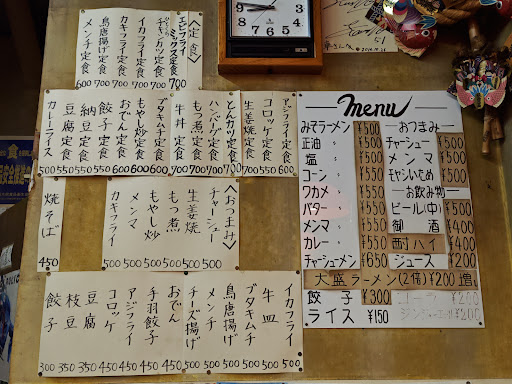 〈定食〉
エビフライ
ミックス定食 700
チキンカツ定食 700
イカフライ定食 700
カキフライ定食 700
鳥唐揚げ定食 700
メンチ定食 600
アジフライ定食 600
コロッケ定食 600
生姜焼定食 550
とんカツ定食 700
ハンバーグ定食 700
もつ煮定食 700
牛丼定食 700
ブタキムチ定食 600
もやし炒定食 600
おでん定食 600
餃子定食 550
納豆定食 550
豆腐定食 550
カレーライス 550
〈おつまみ〉
チャーシュー 500
生姜焼 500
もつ煮 500
もやし炒 500
メンマ 500
カキフライ 500
焼そば 450
イカフライ 500
牛皿 500
ブタキムチ 500
鳥唐揚げ 500
メンチ 500
チーズ揚げ 500
おでん 450
手羽餃子 450
アジフライ 450
コロッケ 450
豆腐 350
枝豆 350
餃子 300
Menu
みそラーメン ¥500
正油 〃 ¥500
塩 〃 ¥500
コーン 〃 ¥550
ワカメ 〃 ¥550
バター 〃 ¥550
メンマ 〃 ¥550
カレー 〃 ¥550
チャーシューメン ¥650
―おつまみ―
チャーシュー ¥500
メンマ ¥500
モヤシいため ¥500
―お飲み物―
ビール(中) ¥500
御酒 ¥400
酎ハイ ¥400
ジュース ¥200
大盛ラーメン(2倍)¥200増
餃子 ¥300
ライス ¥150
コーラ ¥200
ジンジャーエール ¥200